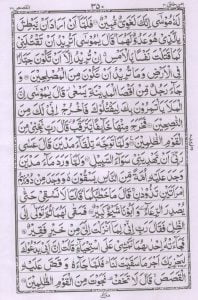 ٣٥٠
لَهٗ مُوْسٰٓى اِنَّكَ لَغَوِىٌّ مُّبِيْنٌ فَلَمَّاۤ اَنْ اَرَادَ اَنْ يَّبْطِشَ
بِالَّذِىْ هُوَ عَدُوٌّ لَّهُمَا قَالَ يٰمُوْسٰٓى اَتُرِيْدُ اَنْ تَقْتُلَنِىْ
كَمَا قَتَلْتَ نَفْسًاۢ بِالْاَمْسِ اِنْ تُرِيْدُ اِلَّاۤ اَنْ تَكُوْنَ جَبَّارًا
فِى الْاَرْضِ وَمَا تُرِيْدُ اَنْ تَكُوْنَ مِنَ الْمُصْلِحِيْنَ وَ
جَآءَ رَجُلٌ مِّنْ اَقْصَا الْمَدِيْنَةِ يَسْعٰى قَالَ يٰمُوْسٰٓى اِنَّ
الْمَلَاَ يَاْتَمِرُوْنَ بِكَ لِيَقْتُلُوْكَ فَاخْرُجْ اِنِّىْ لَكَ مِنَ
النّٰصِحِيْنَ فَخَرَجَ مِنْهَا خَآئِفًا يَّتَرَقَّبُ قَالَ رَبِّ نَجِّنِىْ مِنَ
الْقَوْمِ الظّٰلِمِيْنَ وَلَمَّا تَوَجَّهَ تِلْقَآءَ مَدْيَنَ قَالَ عَسٰى
رَبِّىْۤ اَنْ يَّهْدِيَنِىْ سَوَآءَ السَّبِيْلِ وَلَمَّا وَرَدَ مَآءَ مَدْيَنَ
وَجَدَ عَلَيْهِ اُمَّةً مِّنَ النَّاسِ يَسْقُوْنَ وَوَجَدَ مِنْ دُوْنِهِمُ
امْرَاَتَيْنِ تَذُوْدٰنِ قَالَ مَا خَطْبُكُمَا قَالَتَا لَا نَسْقِىْ حَتّٰى
يُصْدِرَ الرِّعَآءُ وَاَبُوْنَا شَيْخٌ كَبِيْرٌ فَسَقٰى لَهُمَا ثُمَّ تَوَلّٰٓى اِلَى
الظِّلِّ فَقَالَ رَبِّ اِنِّىْ لِمَاۤ اَنْزَلْتَ اِلَىَّ مِنْ خَيْرٍ فَقِيْرٌ
فَجَآءَتْهُ اِحْدٰىهُمَا تَمْشِىْ عَلَى اسْتِحْيَآءٍ قَالَتْ اِنَّ اَبِىْ يَدْعُوْكَ
لِيَجْزِيَكَ اَجْرَ مَا سَقَيْتَ لَنَا فَلَمَّا جَآءَهٗ وَقَصَّ عَلَيْهِ
الْقَصَصَ قَالَ لَا تَخَفْ نَجَوْتَ مِنَ الْقَوْمِ الظّٰلِمِيْنَ